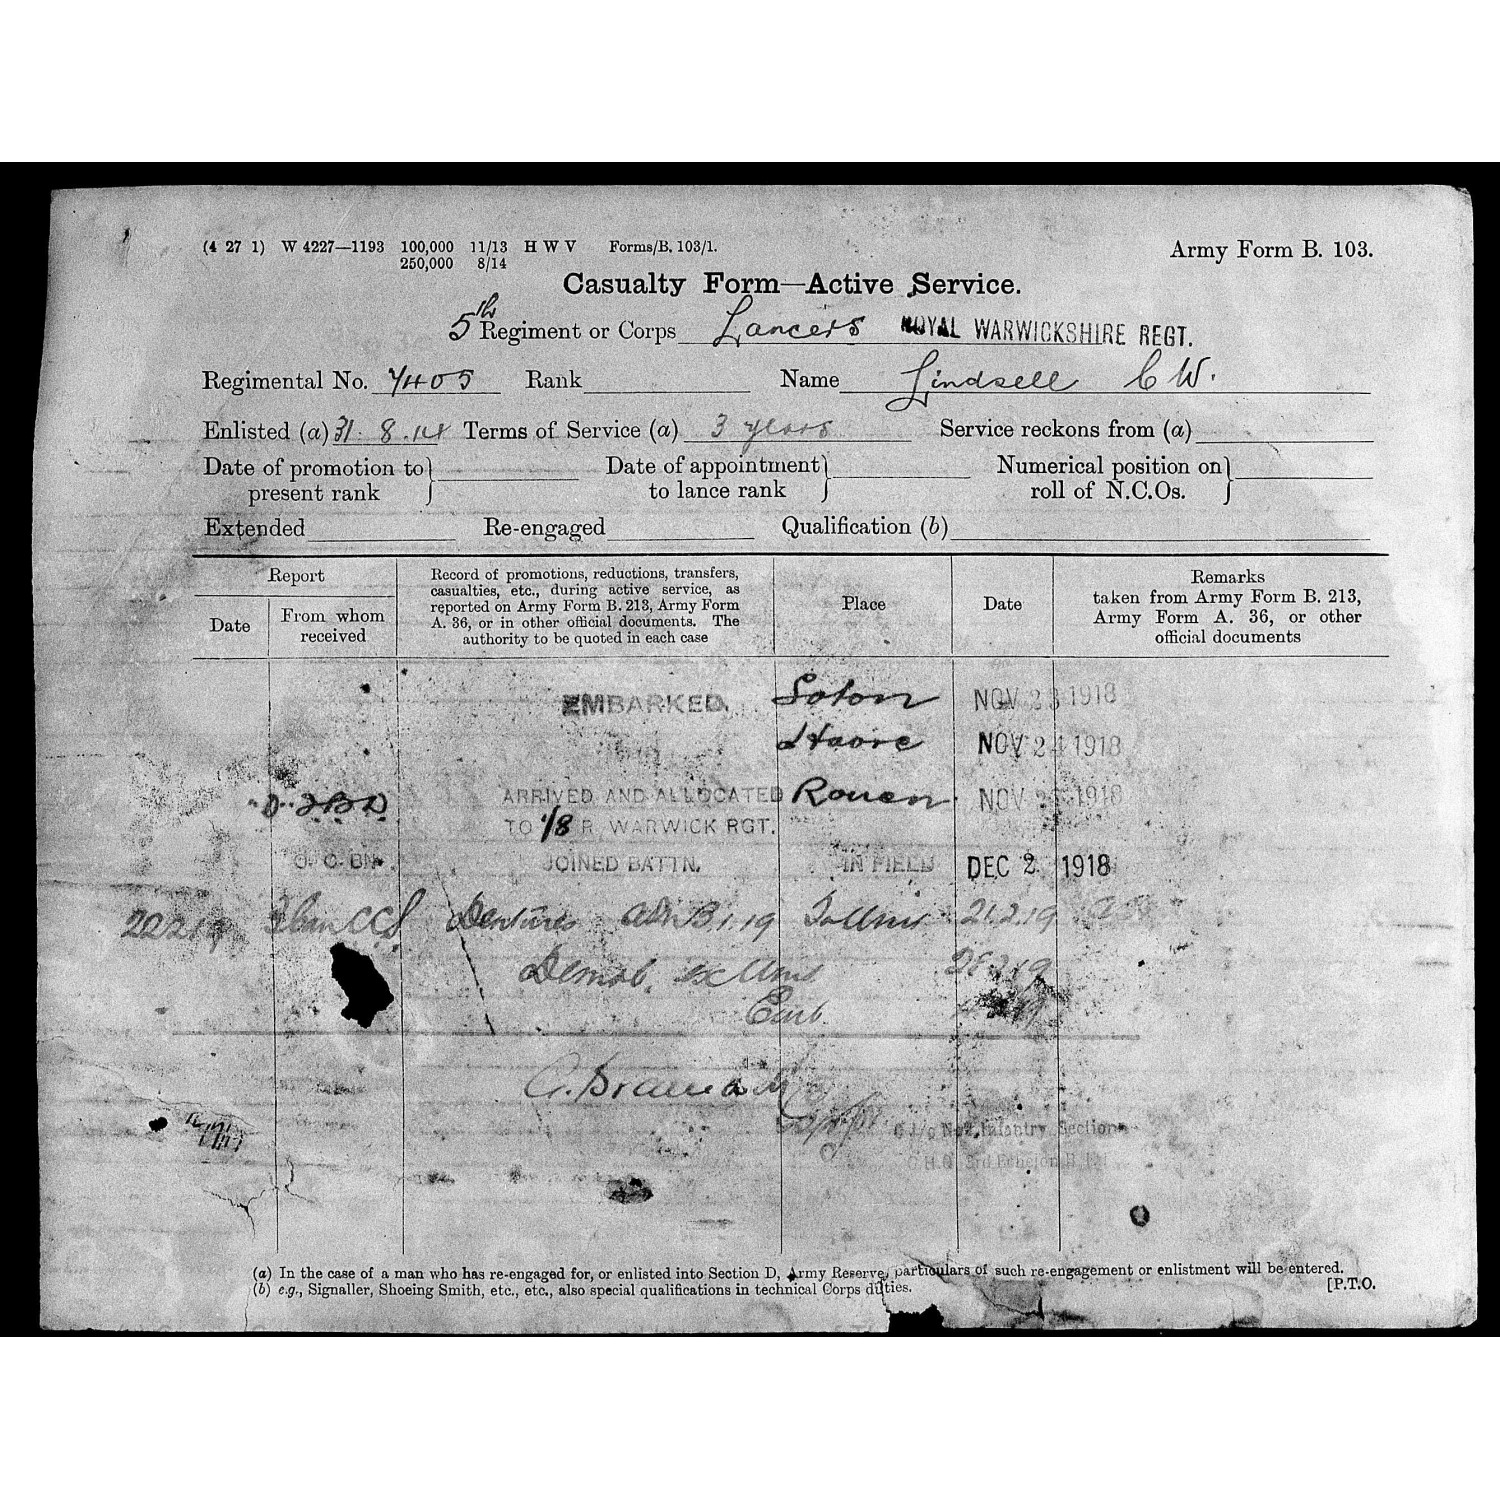 (4 27 1) W 4227—1193 100,000 11/13 H W V Forms/B. 103/1.
250,000 8/14
Army Form B. 103.
Casualty Form—Active Service.
5th Regiment or Corps Lancers ROYAL WARWICKSHIRE REGT.
Regimental No. 7405 Rank Name Lindsell C W.
Enlisted (a) 31.8.14 Terms of Service (a) 3 years Service reckons from (a)
Date of promotion to present rank
Date of appointment to lance rank
Numerical position on roll of N.C.Os.
Extended Re-engaged Qualification (b)
Report
Date
From whom received
Record of promotions, reductions, transfers,
casualties, etc., during active service, as
reported on Army Form B. 213, Army Form
A. 36, or in other official documents. The
authority to be quoted in each case
Place
Date
Remarks
taken from Army Form B. 213,
Army Form A. 36, or other
official documents
EMBARKED. Soton NOV 23 1918
Havre NOV 24 1918
ARRIVED AND ALLOCATED Rouen NOV 1918
TO 1/8 R. WARWICK RGT.
O. C. BN. JOINED BATTN. IN FIELD DEC 2 1918
CCS Dentures adm 13.1.19 To Unit 21.2.19
Demob. ex Unit
Emb.
Infantry Section
G.H.Q. 3rd Echelon
(a) In the case of a man who has re-engaged for, or enlisted into Section D, Army Reserve, particulars of such re-engagement or enlistment will be entered.
(b) e.g., Signaller, Shoeing Smith, etc., etc., also special qualifications in technical Corps duties.
[P.T.O.